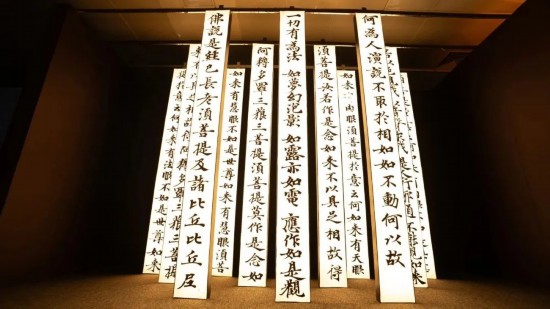 何為人演說不取於相如如不動何以故
如来有肉眼須菩提於意云何如来有天眼
須菩提汝若作是念如来不以具足相故得
一切有為法如夢幻泡影如露亦如電應作如是觀
阿耨多羅三藐三菩提須菩提莫作是念如
如来有慧眼不如是世尊如来有慧眼須菩
佛說是經已長老須菩提及諸比丘比丘尼